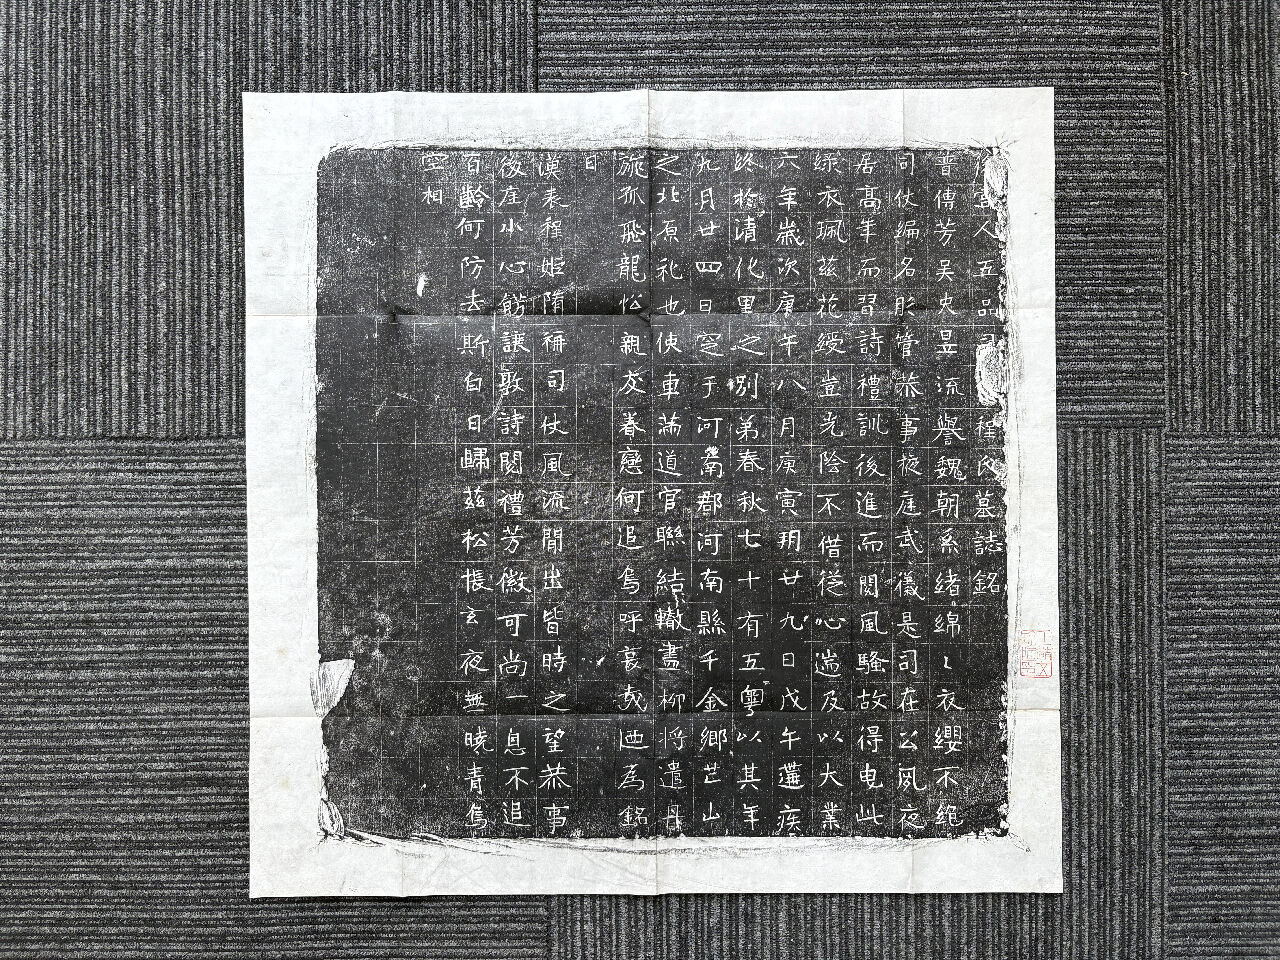 宮人五品司程氏墓誌銘
普傳芳吴史昱流譽魏朝系緒綿〻衣纓不絶
司仗編名彤管恭事掖庭武儀是司在公夙夜
居高年而習詩禮訓後進而閱風騷故得曳此
綠衣珮茲花綬豈光陰不借從心遄及以大業
六年歲次庚午八月庚寅朔廿九日戊午遘疾
終於清化里之別第春秋七十有五粵以其年
九月廿四日窆于河南郡河南縣千金鄉芒山
之北原礼也使車滿道官聯結轍畫柳將遣丹
旐孤飛龍怂親友眷戀何追烏呼哀哉迺為銘
曰
漢表程姬隋稱司仗風流閒出皆時之望恭事
後庭小心餝讓敦詩閱禮芳徽可尚一息不追
百齡何防去斯白日歸茲松帳玄夜無曉青烏
空相